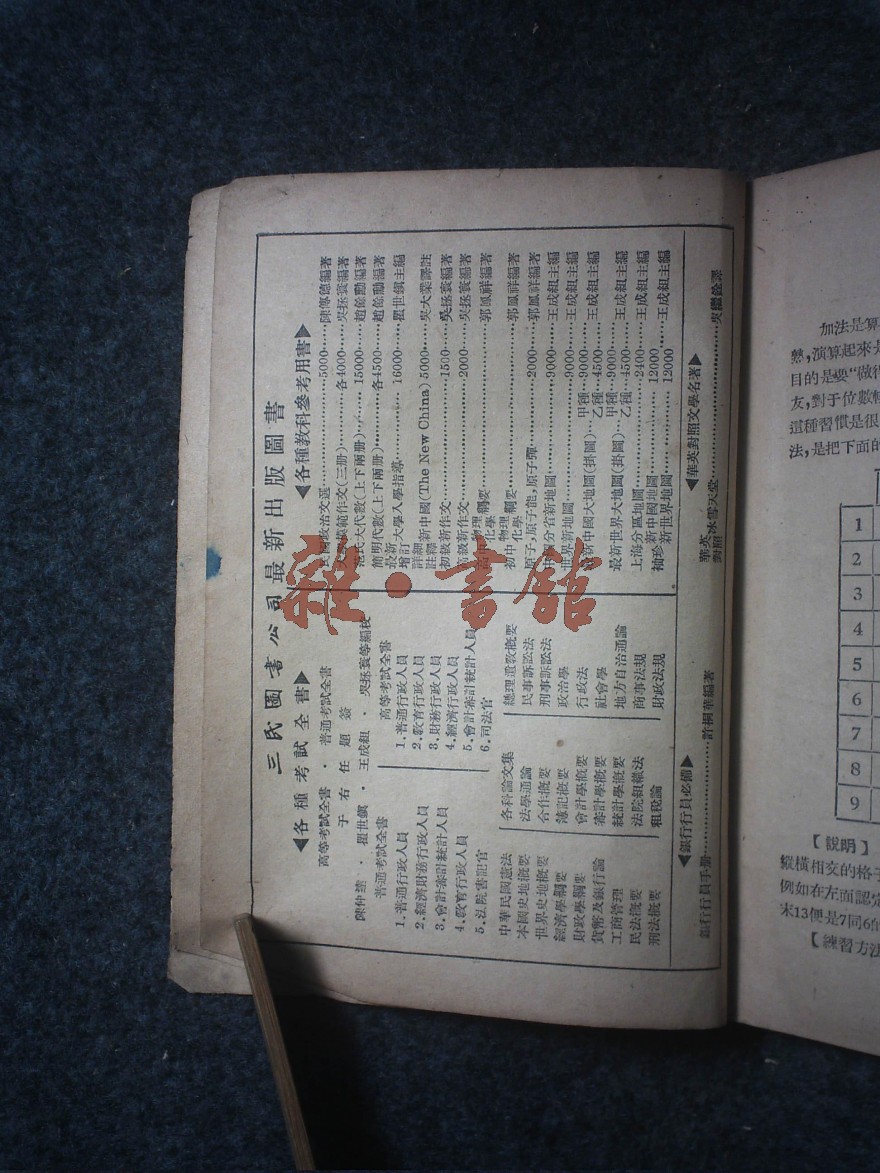 三民圖書公司最新出版圖書
◀各種考試全書▶
高等考試全書・普通考試全書
于右任題簽
陳仲達・瞿世鎮・王成組・吳拯寰等編校
普通考試全書
1.普通行政人員
2.經濟財務行政人員
3.會計審計統計人員
4.教育行政人員
5.法院書記官
高等考試全書
1.普通行政人員
2.教育行政人員
3.財務行政人員
4.經濟行政人員
5.會計審計統計人員
6.司法官
中華民國憲法
本國史地概要
世界史地概要
經濟學綱要
財政學綱要
貨幣及銀行論
工商管理
民法概要
刑法概要
各科論文集
法學通論
合作概要
簿記概要
會計學概要
審計學概要
統計學概要
法院組織法
租稅論
總理遺教概要
民事訴訟法
刑事訴訟法
政治學
行政法
社會學
地方自治通論
商事法規
財政法規
◀各種教科參考用書▶
民國政治文選……5000……陳傳德編著
模範作文(三冊)……各4000……吳拯寰編著
范氏大代數(上下兩冊)……15000……趙餘勳編著
簡明代數(上下兩冊)……各4500……趙餘勳編著
最新增訂大學入學指導……16000……瞿世鎮主編
詳細註釋新中國(The New China)5000……吳大業譯註
初級新作文……1500……吳拯寰編著
高級新作文……2000……吳拯寰編著
高中物理化學綱要……郭鳳祥編著
初中物理化學綱要……郭鳳祥編著
原子,原子能,原子彈……2000……郭鳳祥編著
中國分省新地圖……9000……王成組主編
世界新地圖……9000……王成組主編
最新中國大地圖(掛圖)…甲種…9000 乙種…4500……王成組主編
最新世界大地圖(掛圖)…甲種…9000 乙種…4500……王成組主編
上海分區地圖……2400……王成組主編
袖珍新中國地圖……12000
袖珍新世界地圖……12000……王成組主編
◀銀行行員必備▶
銀行行員手冊……許桐華編著
◀華英對照文學名著▶
華英對照冰雪天堂……吳繼銓譯
加法是算
熟,演算起來是
目的是要"做得
友,對于位數較
這種習慣是很
法,是把下面的
1
2
3
4
5
6
7
8
9
【說明】
縱橫相交的格子
例如在左面認定
末13便是7同6的
【練習方法